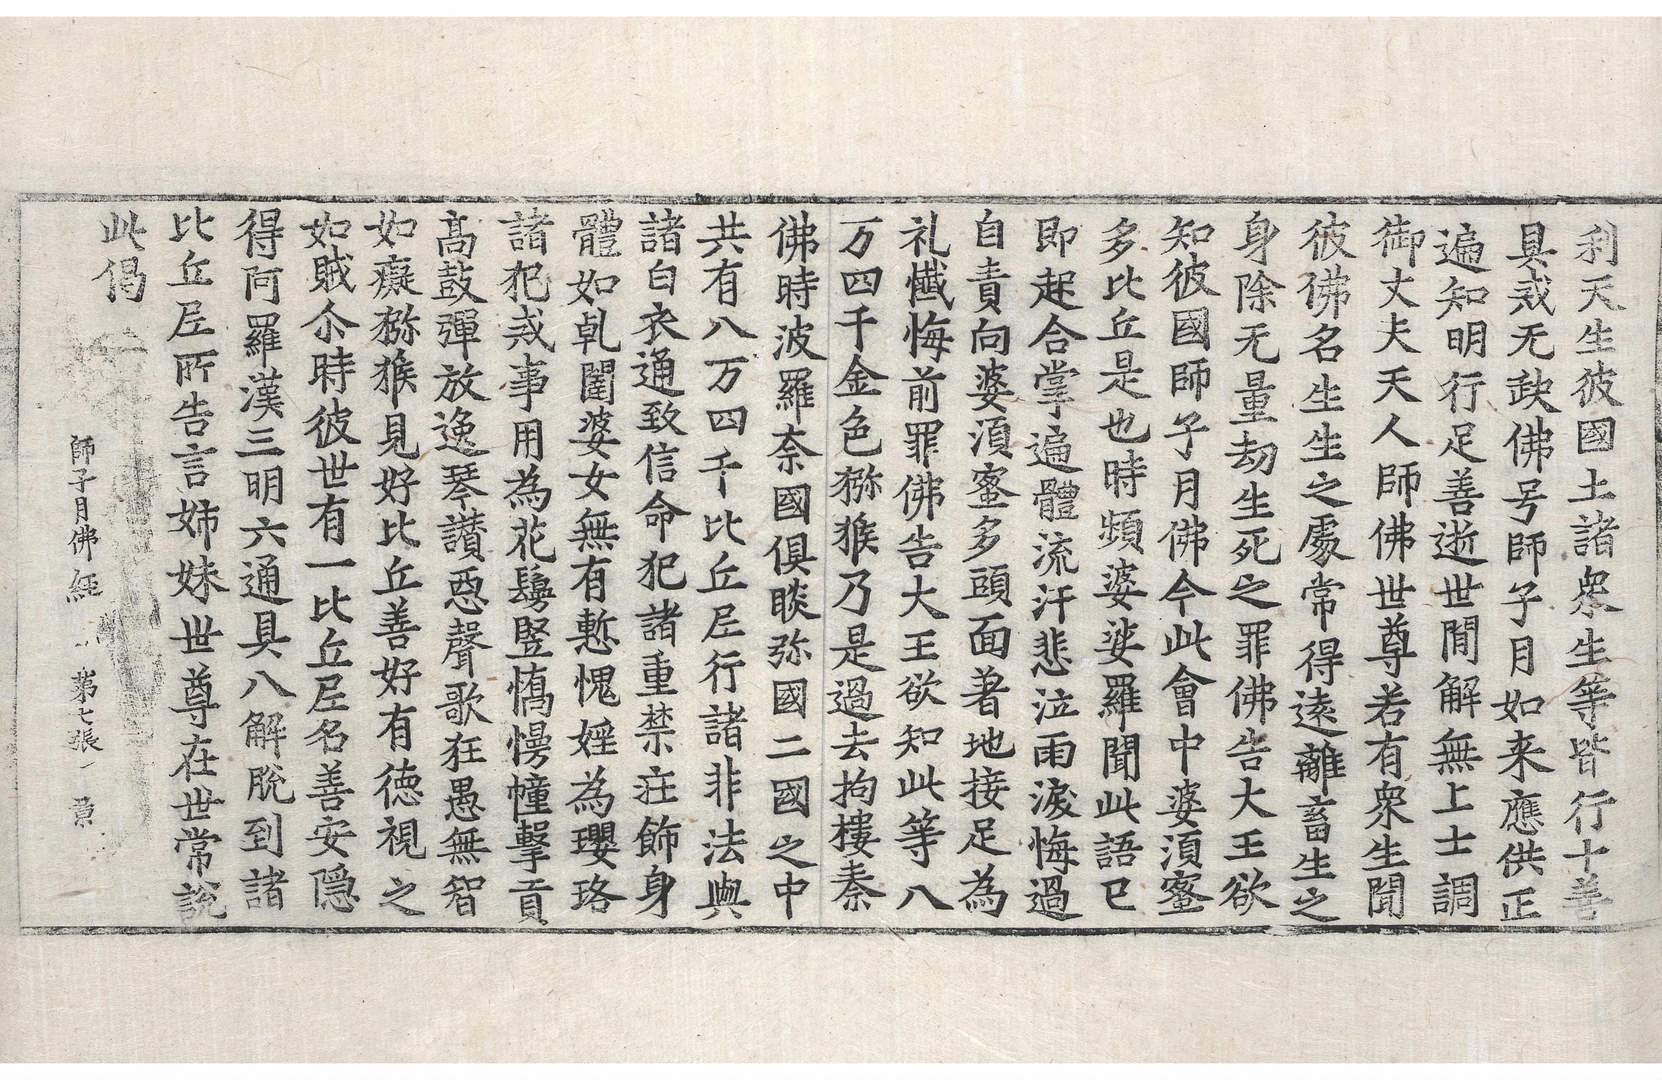 利天生彼國土諸衆生等皆行十善
具戒无缺佛号師子月如来應供正
遍知明行足善逝世間解無上士調
御丈夫天人師佛世尊若有衆生聞
彼佛名生生之處常得遠離畜生之
身除无量劫生死之罪佛告大王欲
知彼國師子月佛今此會中婆湏蜜
多比丘是也時頻婆娑羅聞此語已
即起合掌遍體流汗悲泣雨淚悔過
自責向婆湏蜜多頭面著地接足為
礼懺悔前罪佛告大王欲知此等八
万四千金色猕猴乃是過去拘樓秦
佛時波羅奈國俱睒弥國二國之中
共有八万四千比丘尼行諸非法與
諸白衣通致信命犯諸重禁莊飾身
體如乹闥婆女無有慙愧婬為瓔珞
諸犯戒事用為花鬘竪憍慢幢擊貢
髙皷彈放逸琴讃惡聲歌狂愚無智
如癡猕猴見好比丘善好有德視之
如賊尒時彼世有一比丘尼名善安隱
得阿羅漢三明六通具八解脫到諸
比丘尼所告言姉妹世尊在世常說
此偈
師子月佛經 第七張 景